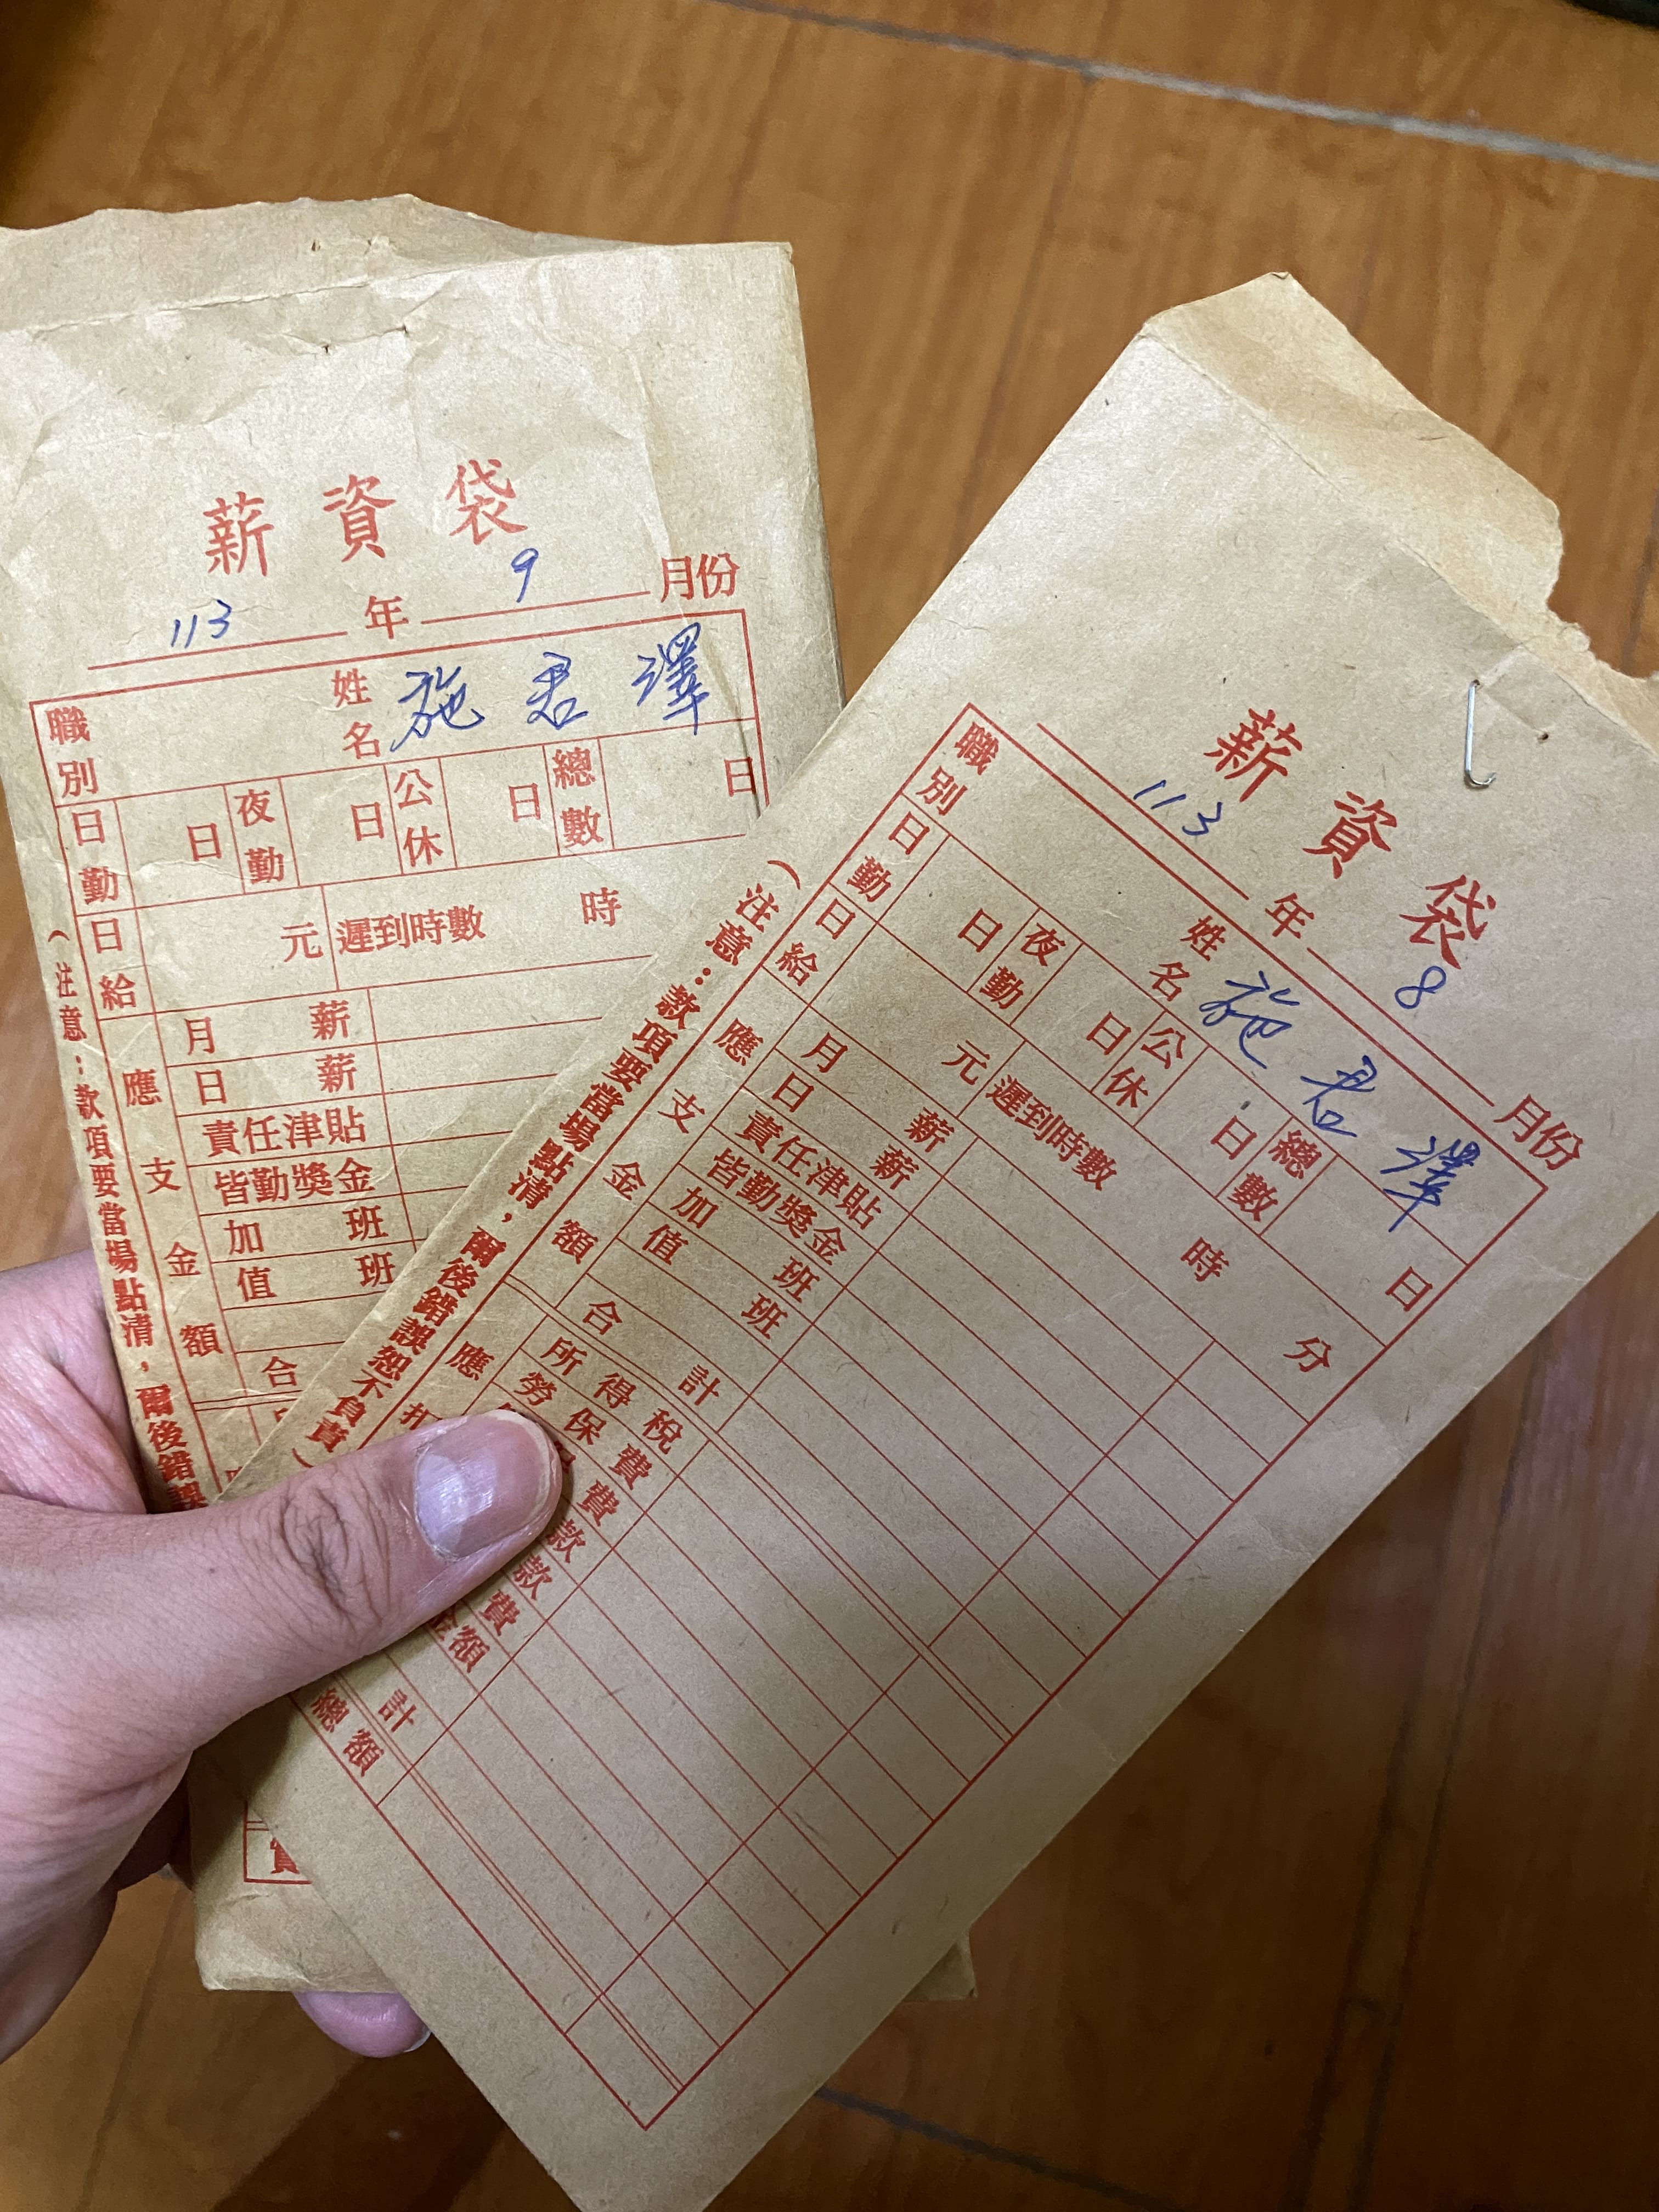 薪資袋
113年9月份
職別 姓名 施君澤
日勤 日 夜勤 日 公休 日 總數 日
日給 元 遲到時數 時
應支金額
月薪
日薪
責任津貼
皆勤獎金
加班
值班
合
(注意：款項要當場點清，爾後錯誤
實
薪資袋
113年8月份
職別 姓名 施君澤
日勤 日 夜勤 日 公休 日 總數 日
日給 元 遲到時數 時 分
應支金額
月薪
日薪
責任津貼
皆勤獎金
加班
值班
合計
應扣
所得稅
勞保費
費
款
款
費
金額
計
總額
(注意：款項要當場點清，爾後錯誤恕不負責)